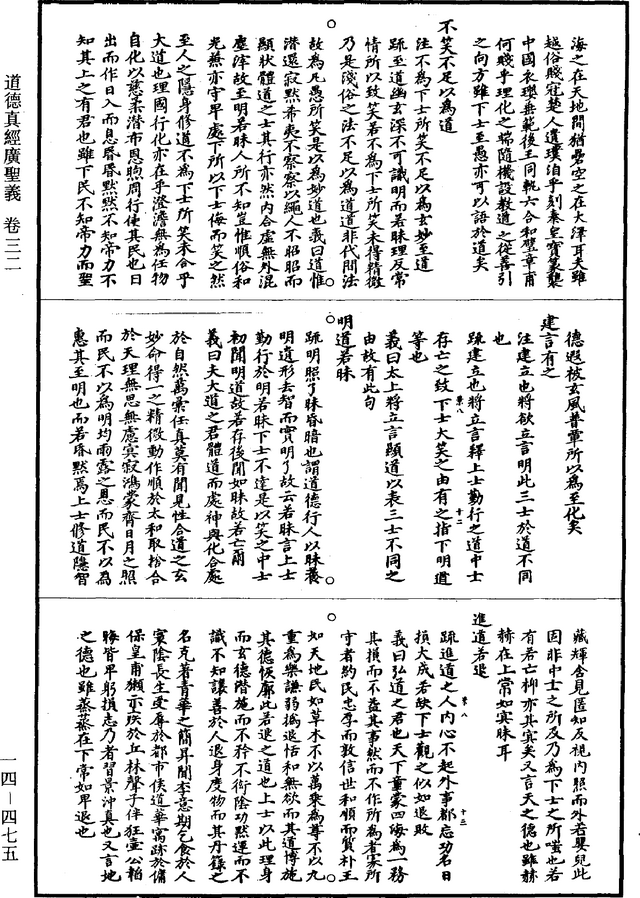 道德真經廣聖義 卷三二
一四—四七五
海之在天地間猶罍空之在大澤耳又雖
越俗賤冠楚人遺璞洎乎刻秦皇寶篆襲
中國衣纓垂範後王同軌六合和璧章甫
何賤乎理化之端隨機設教道之從善引
之向方雖下士至愚亦可以語於道矣
不笑不足以為道
注不為下士所笑不足以為玄妙至道
疏至道幽玄深不可識明而若昧理反常
情所以致笑若不為下士所笑未得精微
乃是淺俗之法不足以為道道非代間法
故為凡愚所笑是以為妙道也義曰道惟
潛還寂默希夷不察察以繩人不昭昭而
顯狀體道之士其行亦然內合虛無外混
塵滓故至明若昧人所不知豈惟順俗和
光蕪亦守早處下所以下士侮而笑之然
至人之隱身修道不為下士所笑未合乎
大道也理國行化亦在乎澄澹無為任物
自化以慈柔潛布恩煦周行使其民也日
出而作日入而息昏昏默默不知帝力不
知其上之有君也雖下民不知帝力而聖
德遐被玄風普覃所以為至化矣
建言有之
注建立也將欲立言明此三士於道不同
也
疏建立也將立言釋上士勤行之道中士
存亡之致下士大笑之由有之指下明道
等也
義曰太上將立言顯道以表三士不同之
由故有此句
明道若昧
疏明照了昧昏暗也謂道德行人以昧養
明遺形去智而實明了故云若昧言上士
勤行於明若昧下士不達是以笑之中士
初聞明道故若存後聞如昧故若亡爾
義曰夫大道之君體道而處神與化合處
於自然萬彙任真莫有聞見性合道之玄
妙命得一之精微動作順於太和取捨合
於天理無思無慮冥寂鴻蒙齊日月之照
而民不以為明均雨露之恩而民不以為
惠其至明也而若昏默焉上士修道隱智
藏輝含見匿知反視內照而外若嬰兒此
固非中士之所及乃為下士之所嗤也若
有若亡抑亦其宜矣又言天之德也雖赫
赫在上常如冥昧耳
進道若退
疏進道之人內心不起外事都忘功名日
損大成若缺下士觀之似如退敗
義曰弘道之君也天下童蒙四海為一務
其損而不益其事然而不作所為者家所
守者約民忠孝而敦信世和順而質朴王
如天地民如草木不以萬乘為尊不以九
重為樂謙弱撝退恬和無欲而其道博施
其德恢廓此若退之道也上士以此理身
而玄德階施而不矜不衒陰功默運而不
識不知讓善於人退身度物而其丹籙之
名克著青華之簡昇聞李意期乞食於人
寰陰長生受辱於都市侯道華寓跡於傭
保皇甫獺示疾於丘林髽子佯狂壺公柏
晦皆早躬損志乃者習景沖真也又言地
之德也雖蒸蒸在下常如早退也